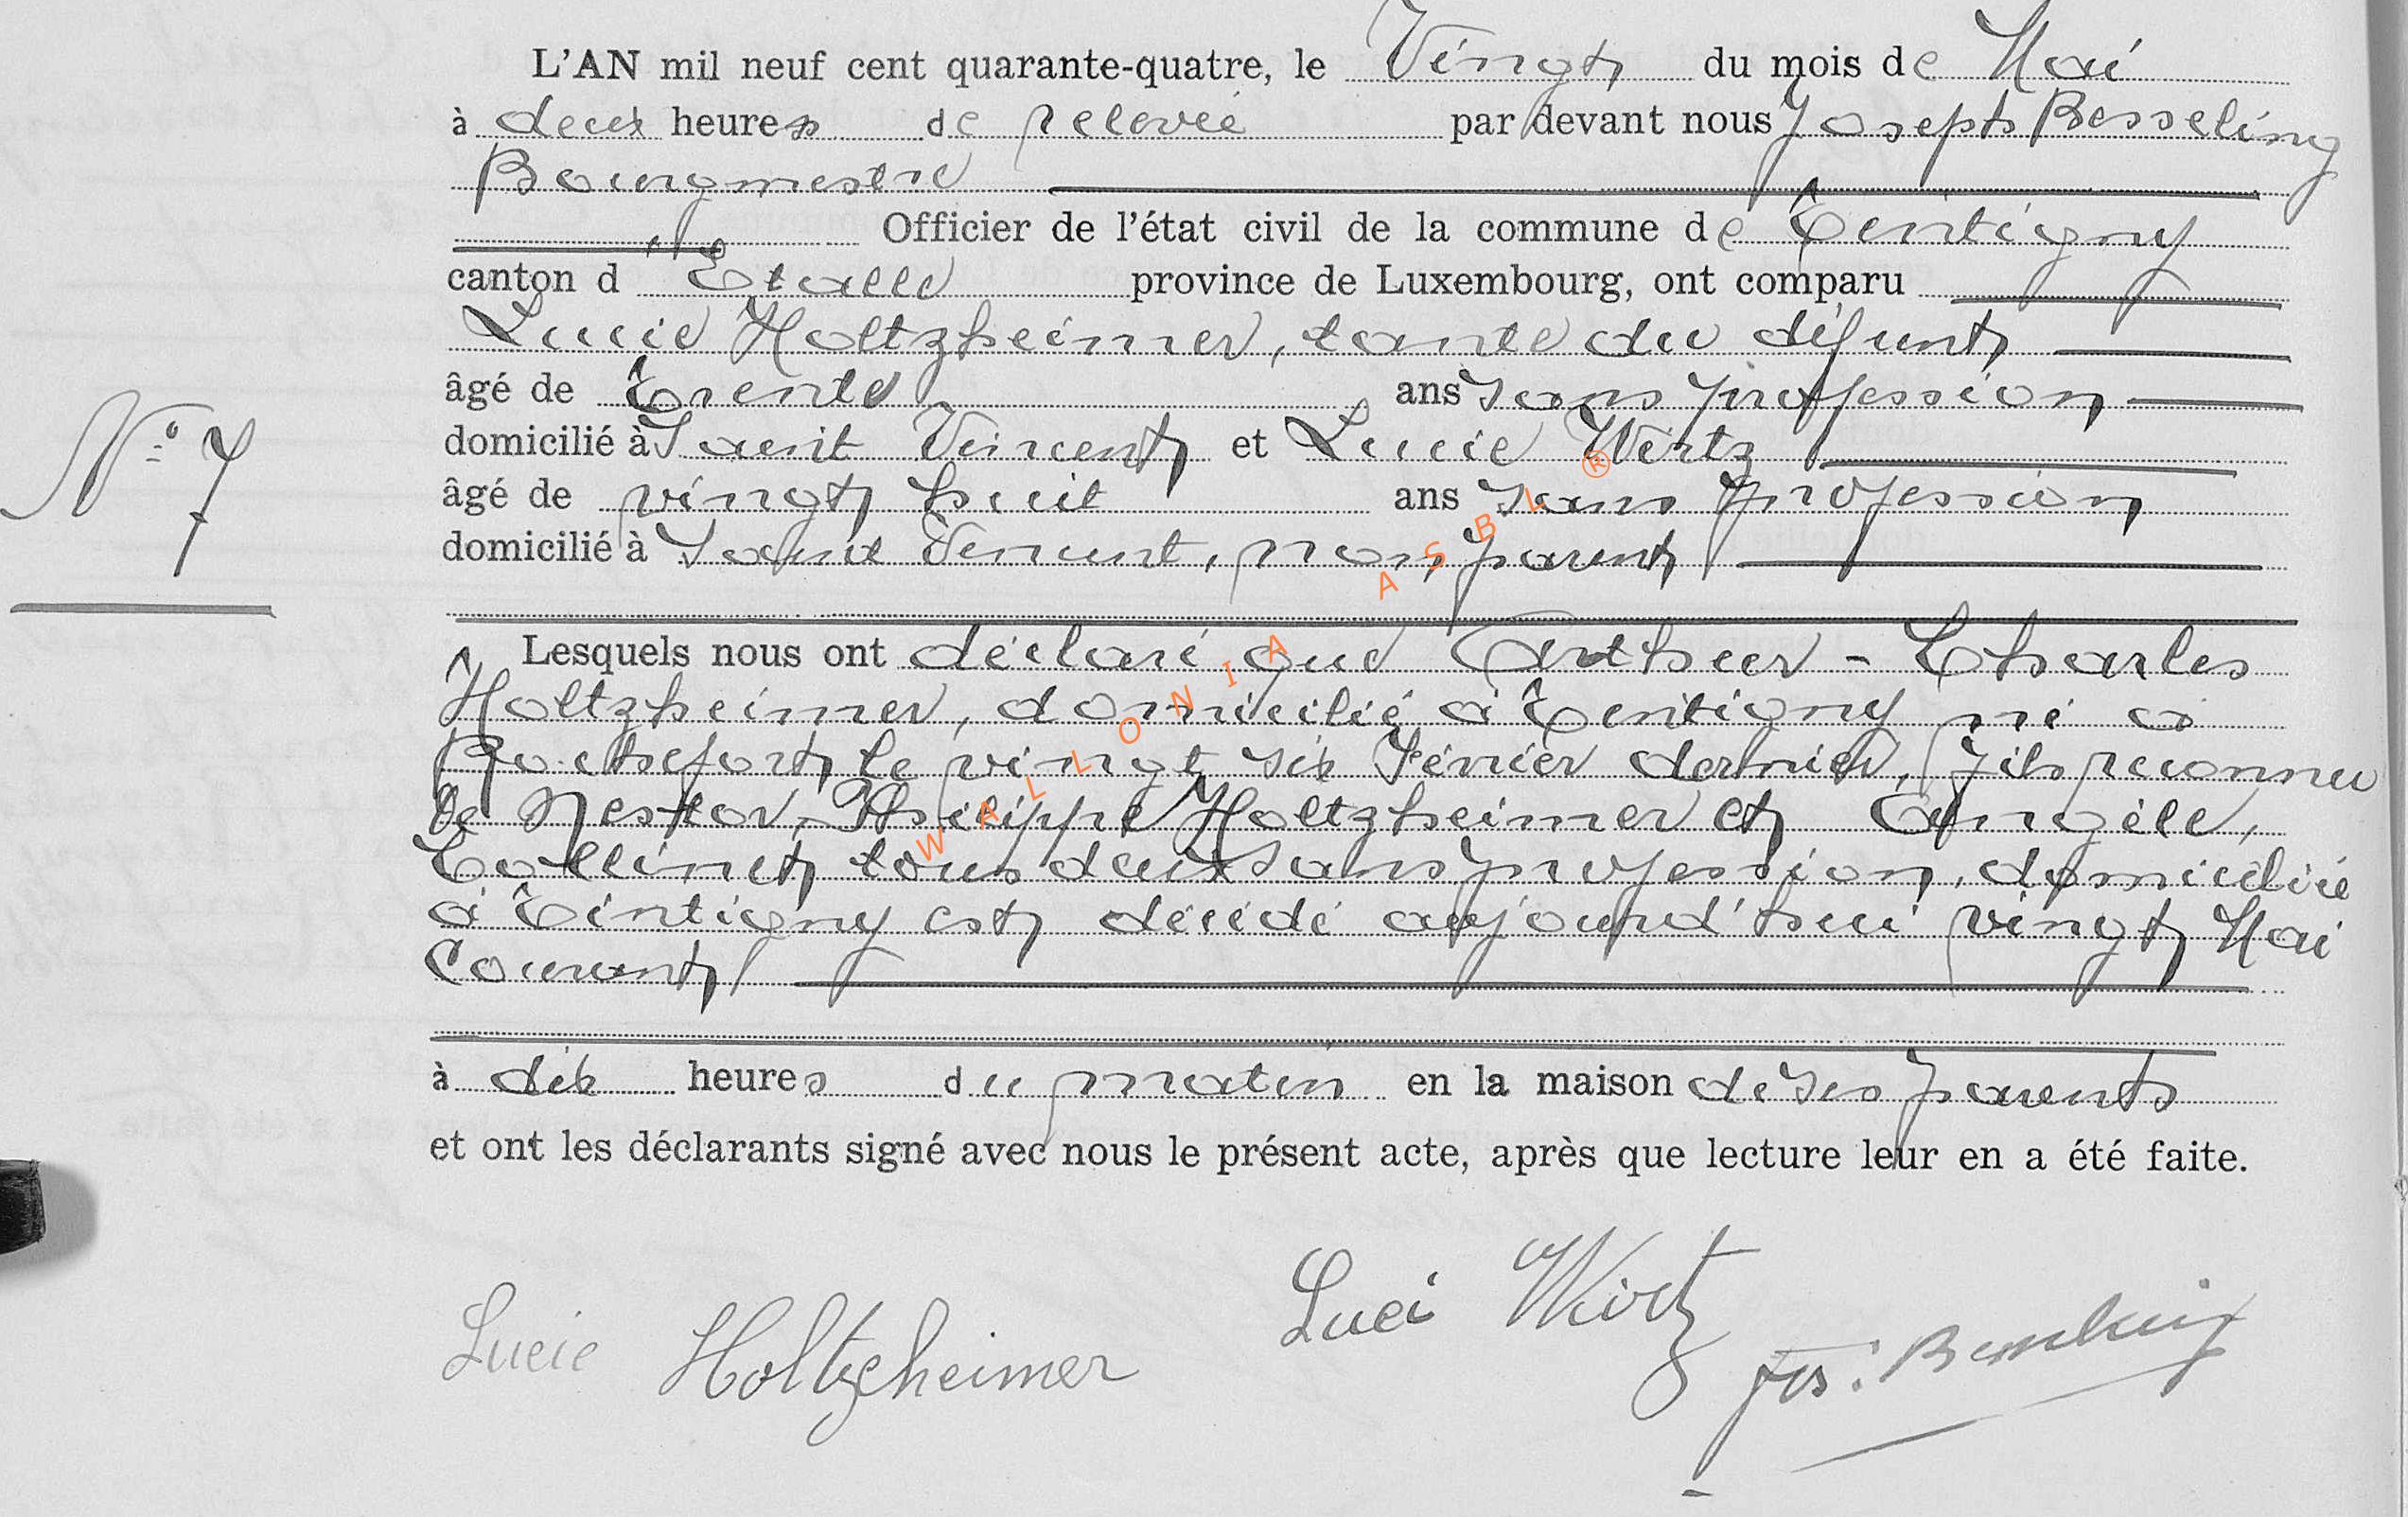 L'AN mil neuf cent quarante-quatre, le Vingt du mois de Mai
à deux heures de relevée par devant nous Joseph Besseling
Bourgmestre
Officier de l'état civil de la commune de Tintigny
canton d'Etalle province de Luxembourg, ont comparu
Lucie Holtzheimer, tante du défunt
âgé de trente ans sans profession
domicilié à Saint Vincent et Lucie Wirtz
âgé de vingt huit ans sans profession
domicilié à Saint Vincent, non parent
N° 7
Lesquels nous ont déclaré que Arthur - Charles
Holtzheimer, domicilié à Tintigny né à
Boitsfort le vingt six Février dernier, fils reconnu
de Nestor, Philippe Holtzheimer et Angèle,
Collinet tous deux sans profession, domicilié
à Tintigny est décédé aujourd'hui vingt Mai
Courant
à dix heures du matin en la maison de ses parents
et ont les déclarants signé avec nous le présent acte, après que lecture leur en a été faite.
Lucie Holtzheimer
Luci Wirtz
Jos. Besseling
WALLONIA ASBL ®